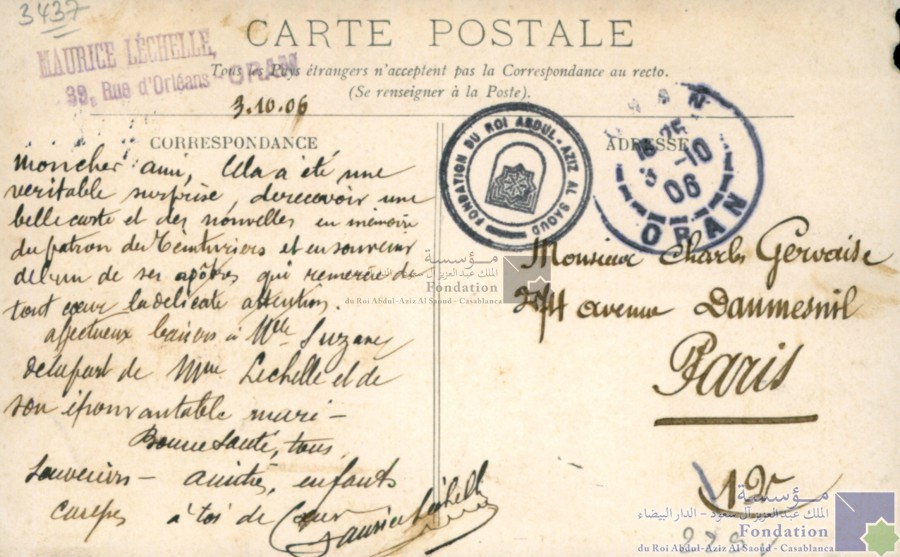 3437
CARTE POSTALE
MAURICE LÉCHELLE,
39, Rue d'Orléans ORAN
Tous les Pays étrangers n'acceptent pas la Correspondance au recto.
(Se renseigner à la Poste).
3.10.06
CORRESPONDANCE
moncher ami, Cela a été une
veritable surprise derecevoir une
belle carte et des nouvelles en mémoire
du patron des Teinturiers et en souvenir
del'un de ses apôtres qui remercie de
tout cœur la délicate attention.
affectueux baisers à Mlle Suzane
delapart de Mme Lechelle et de
son épouvantable mari –
Bonne Santé, tous
Souvenirs – amitiés, enfants
à toi de Cœur
Maurice Léchelle
ADRESSE
FONDATION DU ROI ABDUL-AZIZ AL SAOUD
ORAN
3 -10
06
ORAN
Monsieur Charles Gervaise
avenue Daumesnil
Paris
مؤسسة
الملك عبدالعزيز آل سعود – الدار البيضاء
Fondation
du Roi Abdul-Aziz Al Saoud - Casablanca
مؤسسة
الملك عبدالعزيز آل سعود – الدار البيضاء
Fondation
du Roi Abdul-Aziz Al Saoud - Casablanca